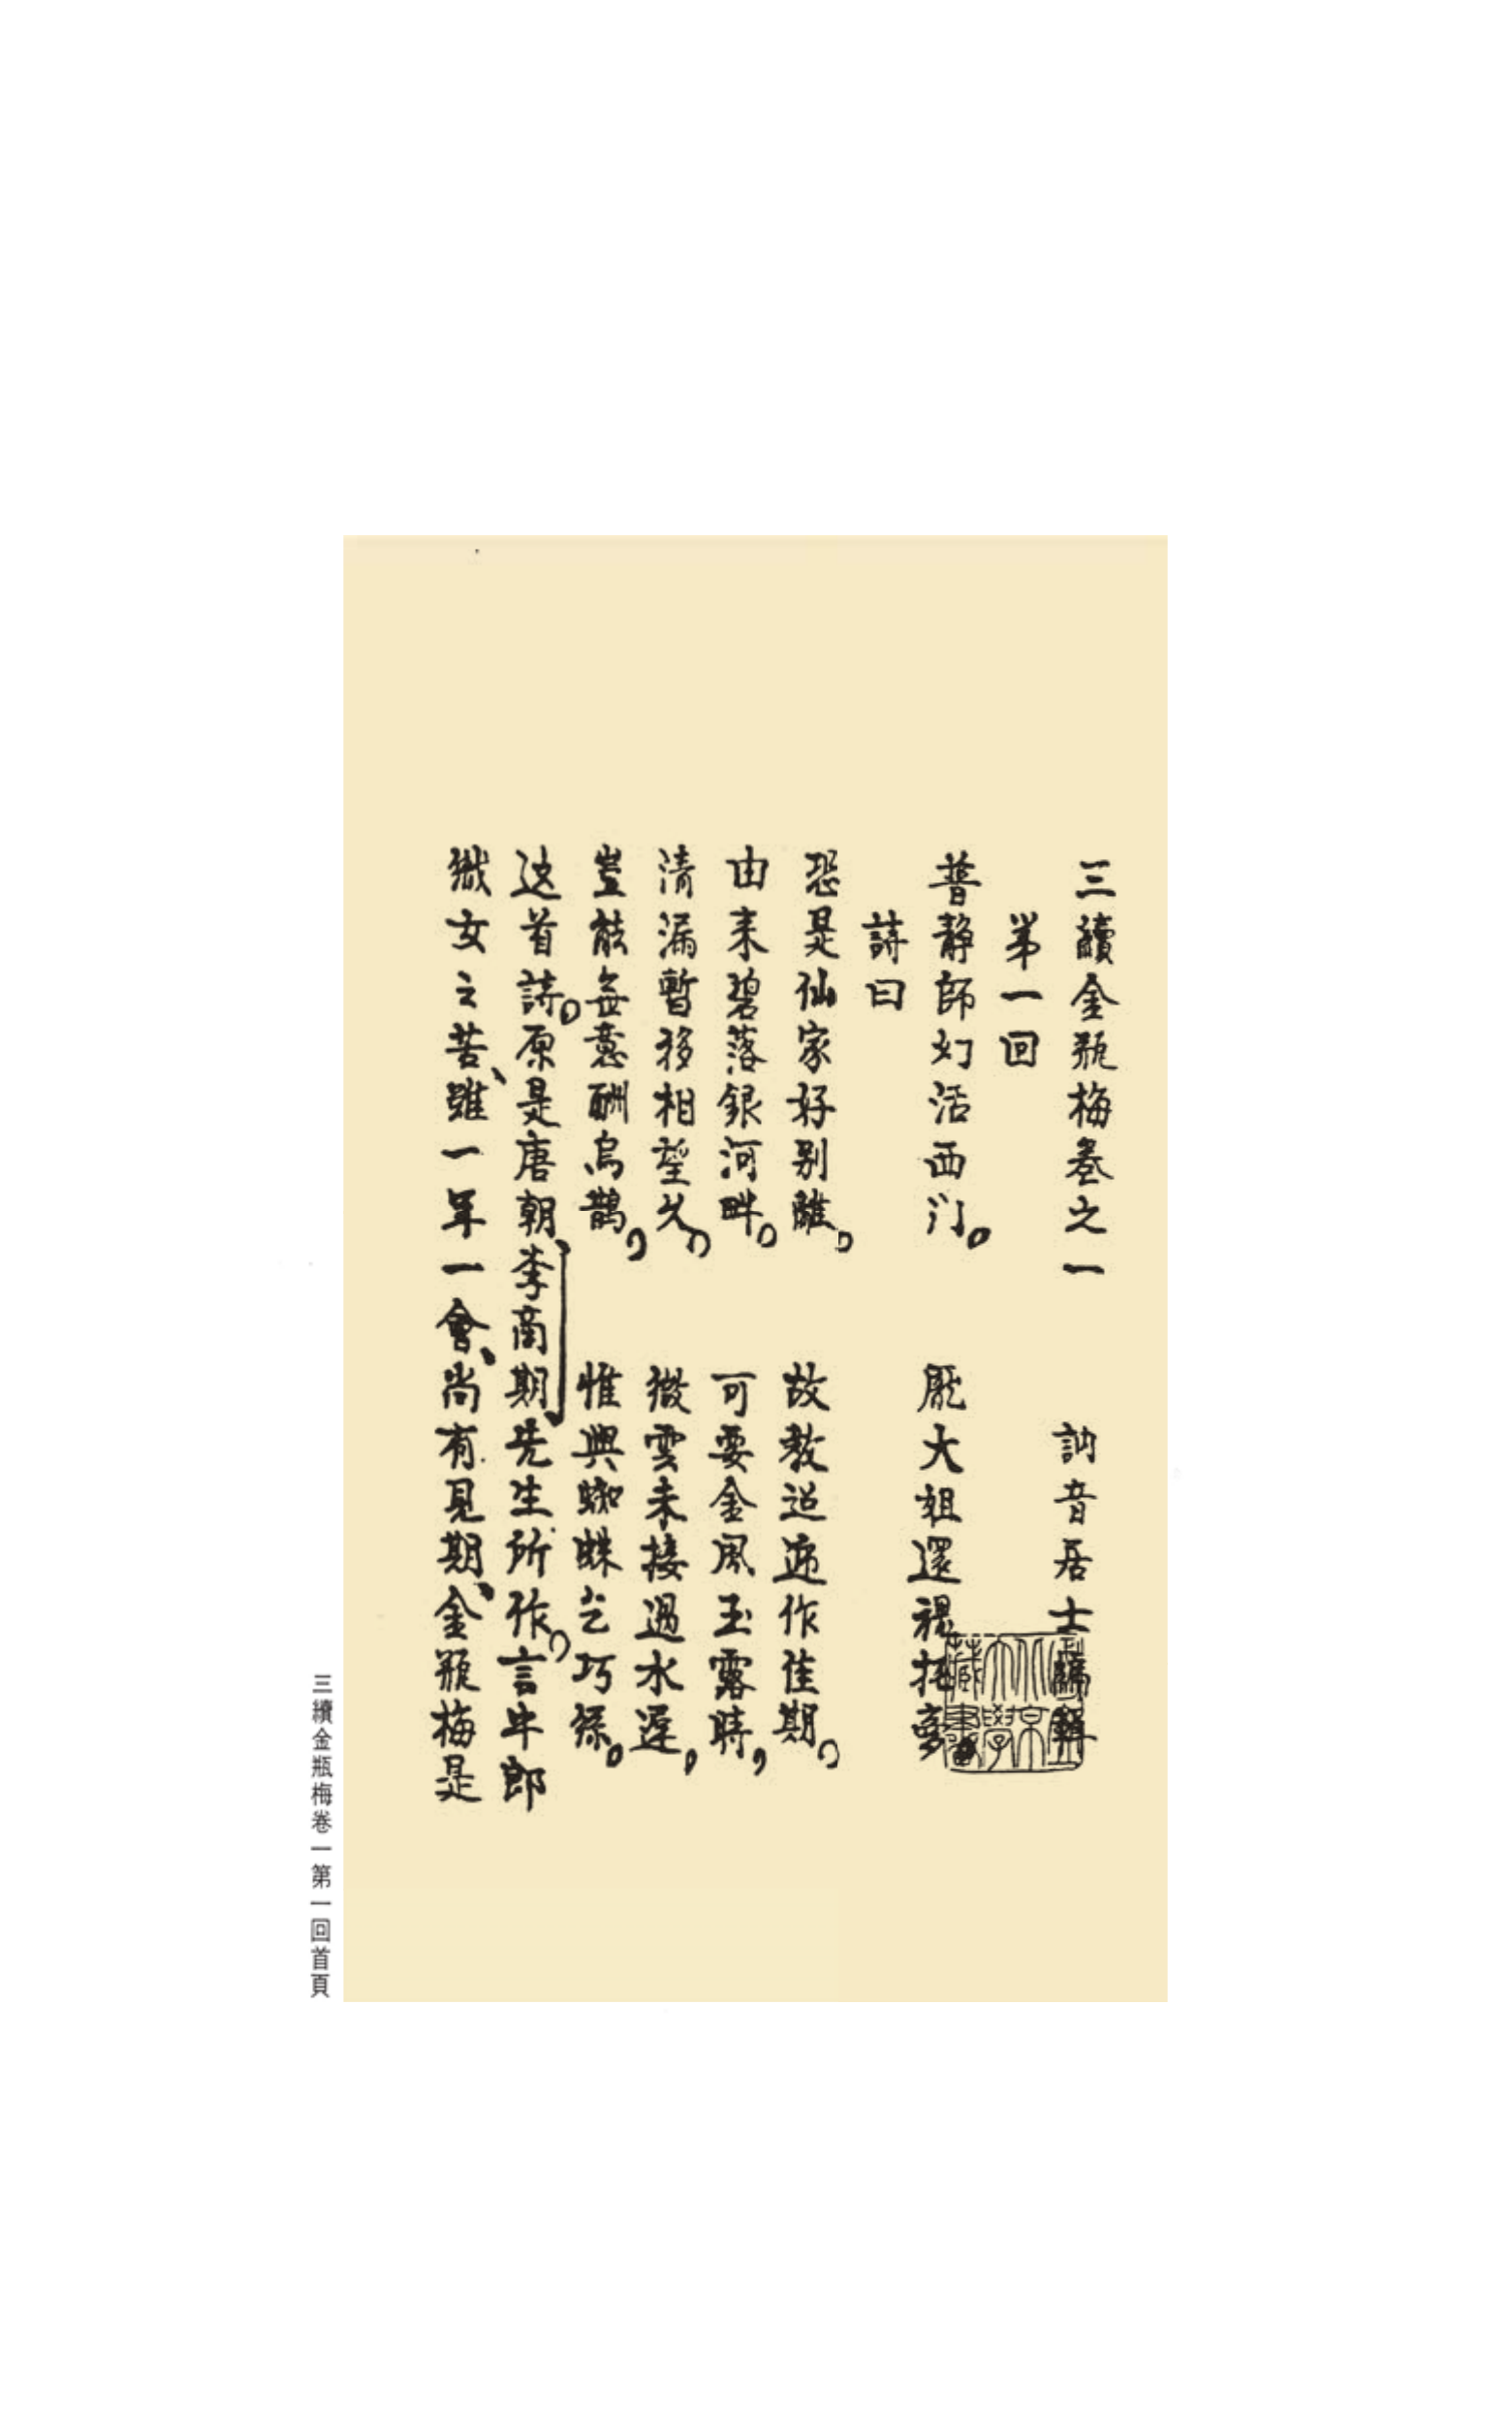 三續金瓶梅卷之一　訥音居士編輯
第一回
普静師幻活西门。　龎大姐還魂托夢。
詩曰
恐是仙家好别離。　故教迢遞作佳期。
由来碧落銀河畔。　可要金風玉露時，
清漏暫移相望久。　微雲未接過水遲，
豈能無意酬烏鵲，　惟與蜘蛛乞巧絲。
这首詩。原是唐朝、李商期先生所作。言牛郎
織女之苦、雖一年一會、尚有見期、金瓶梅是
國立北京大學藏書
三續金瓶梅卷一第一回首頁